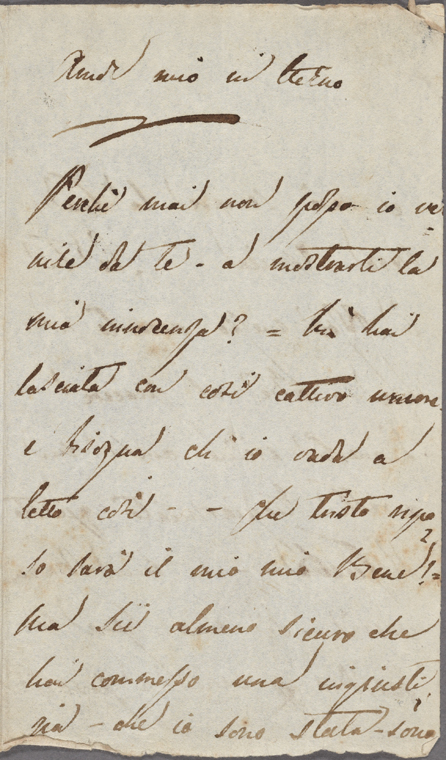 mio in Eterno
Perchè mai non posso io ve=
nire da te - a mostrarti la
mia innocenza? = tu hai
lasciata con così cattivo umore
e bisogna ch' io vada a
letto così - - che tristo ripo=
so sarà il mio mio Bene!=
ma sii almeno sicuro che
hai commesso una ingiusti=
zia - che io sono stata - sono